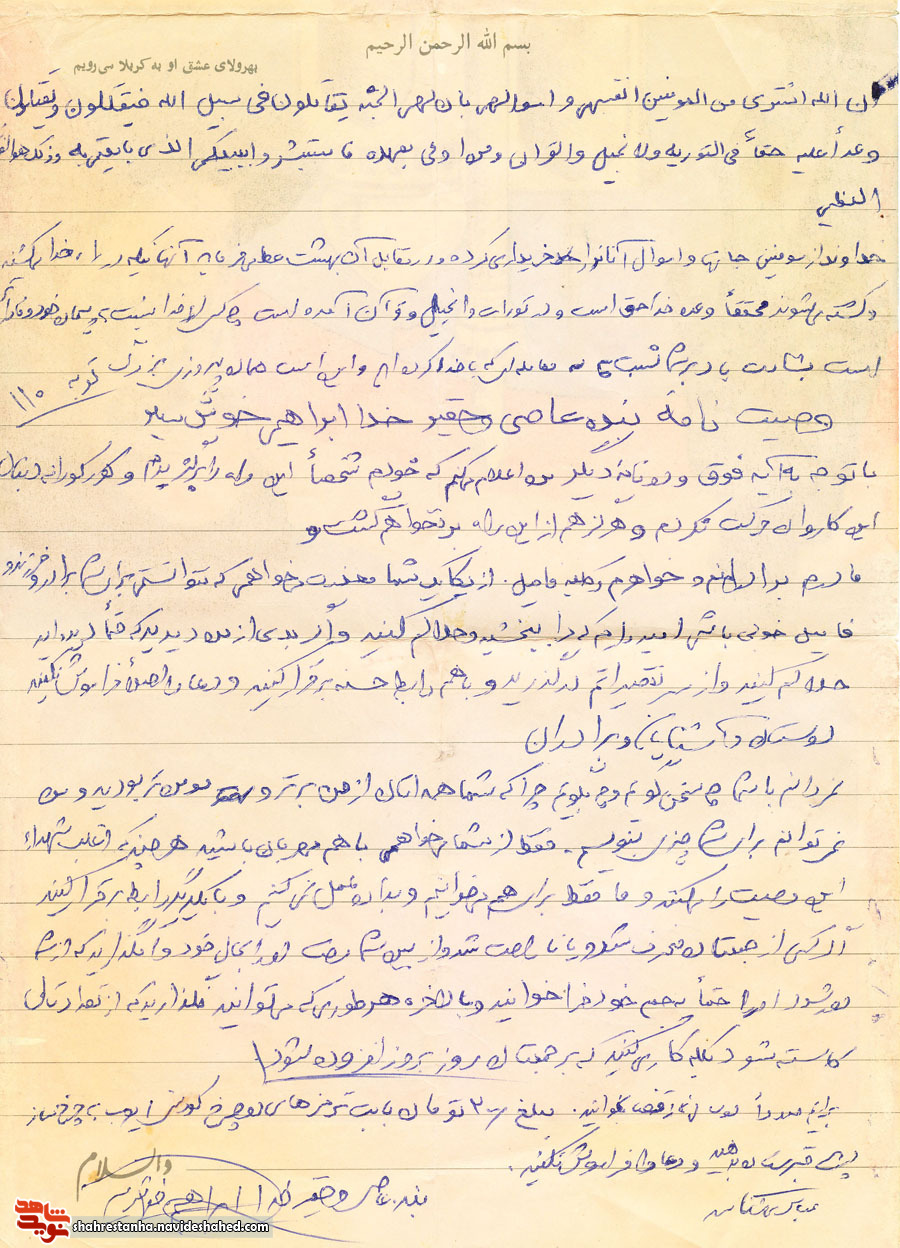 بسم الله الرحمن الرحیم
بهر ولای عشق او به کربلا می رویم
ان الله اشتری من المومنین انفسهم و اموالهم بان لهم الجنه یقاتلون فی سبیل الله فیقتلون و یقتلون
وعداً علیه حقاً فی التوریه والانجیل والقران ومن اوفی بعهده فاستبشروا ببیعکم الذی بایعتم به وذلک هوالفوز
العظیم
خداوند از مومنین جانها و اموال آنان را خریداری کرده و در مقابل آن بهشت عطا می فرماید آنهائیکه در راه خدا میکشند
و کشته میشوند محققاً وعده خدا حق است و در تورات و انجیل و قرآن آمده است چه کس از خدا نیست به پیمان خود وفادارتر
است بشارت باد بر شما به معامله ای که با خدا کرده اید و این است همان پیروزی بزرگ توبه ۱۱۰
وصیت نامه بنده عاصی و حقیر خدا ابراهیم
با توجه به آیه فوق و آیه دیگر من اعلام میکنم که خودم شخصاً این راه را پذیرفتم و کورکورانه دنبال
این کاروان حرکت نکردم و هرگز هم از این راه برنخواهم گشت و
مادرم برادرانم و خواهرم و کلیه فامیل. از یکایک شما معذرت میخواهم که نتوانستم برای شما برادر و فرزند و
فامیل خوبی باشم امیدوارم که مرا ببخشید و حلالم کنید و اگر بدی از من دیدید که حتماً دیده اید
حلالم کنید و از سر تقصیراتم درگذرید و با هم رابطه حسنه برقرار کنید و دعا را اصلاً فراموش نکنید
دوستان و آشنایان و برادران
نمیدانم با شما چه سخن گویم و چه بگویم چرا که شما همه اتان از من برتر و مومن تر بودید و من
نمی توانم برای شما چیزی بنویسم. فقط از شما میخواهم با هم مهربان باشید هر چند که اغلب شهداء
این وصیت را میکنند و ما فقط برای هم میخوانیم و بدان عمل نمی کنیم و با یکدیگر رابطه برقرار کنید
اگر کسی از جمعتان منحرف شد و یا ناراحت شد و از بین شما رفت او را بحال خود وامگذارید که از شما
دور شود او را حتماً به جمع خود فرا خوانید و بالاخره هر طوری که میتوانید نگذارید که از تعدادتان
کاسته شود بلکه کاری کنید که بر جمعتان روز بروز افزوده شود
برایم نماز قضا بخوانید. مبلغ ۲۰۰ تومان بابت ترمزهای دوچرخه به چرخساز
قبرستان بدهید و دعا را فراموش نکنید.
والسلام
بنده عاصی و حقیر خدا ابراهیم
شاهد
نوید
shahrestanha.navideshahed.com